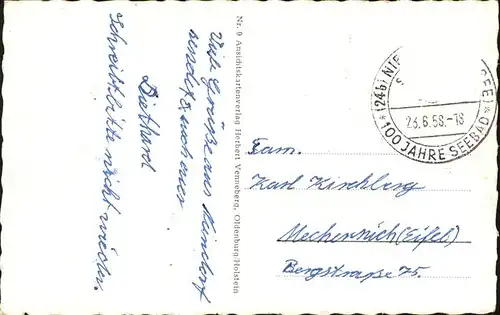 Viele Grüße aus Niendorf
sendet euch euer
Diethard
Schreibt bitte nicht wieder.
Nr. 9 Ansichtskartenverlag Herbert Venneberg, Oldenburg/Holstein
(24b) NIE
SEE)
23.6.58.-18
* 100 JAHRE SEEBAD *
Fam.
Karl Kirchberg
Mechernich (Eifel)
Bergstraße 75.